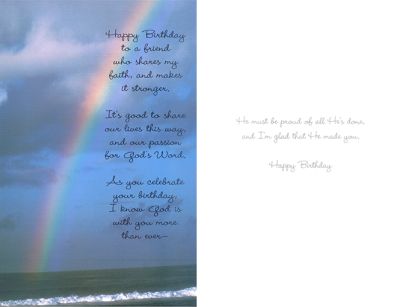 Happy Birthday
to a friend
who shares my
faith, and makes
it stronger.
It's good to share
our lives this way,
and our passion
for God's Word.
As you celebrate
your birthday,
I know God is
with you more
than ever—
He must be proud of all He's done,
and I'm glad that He made you.
Happy Birthday